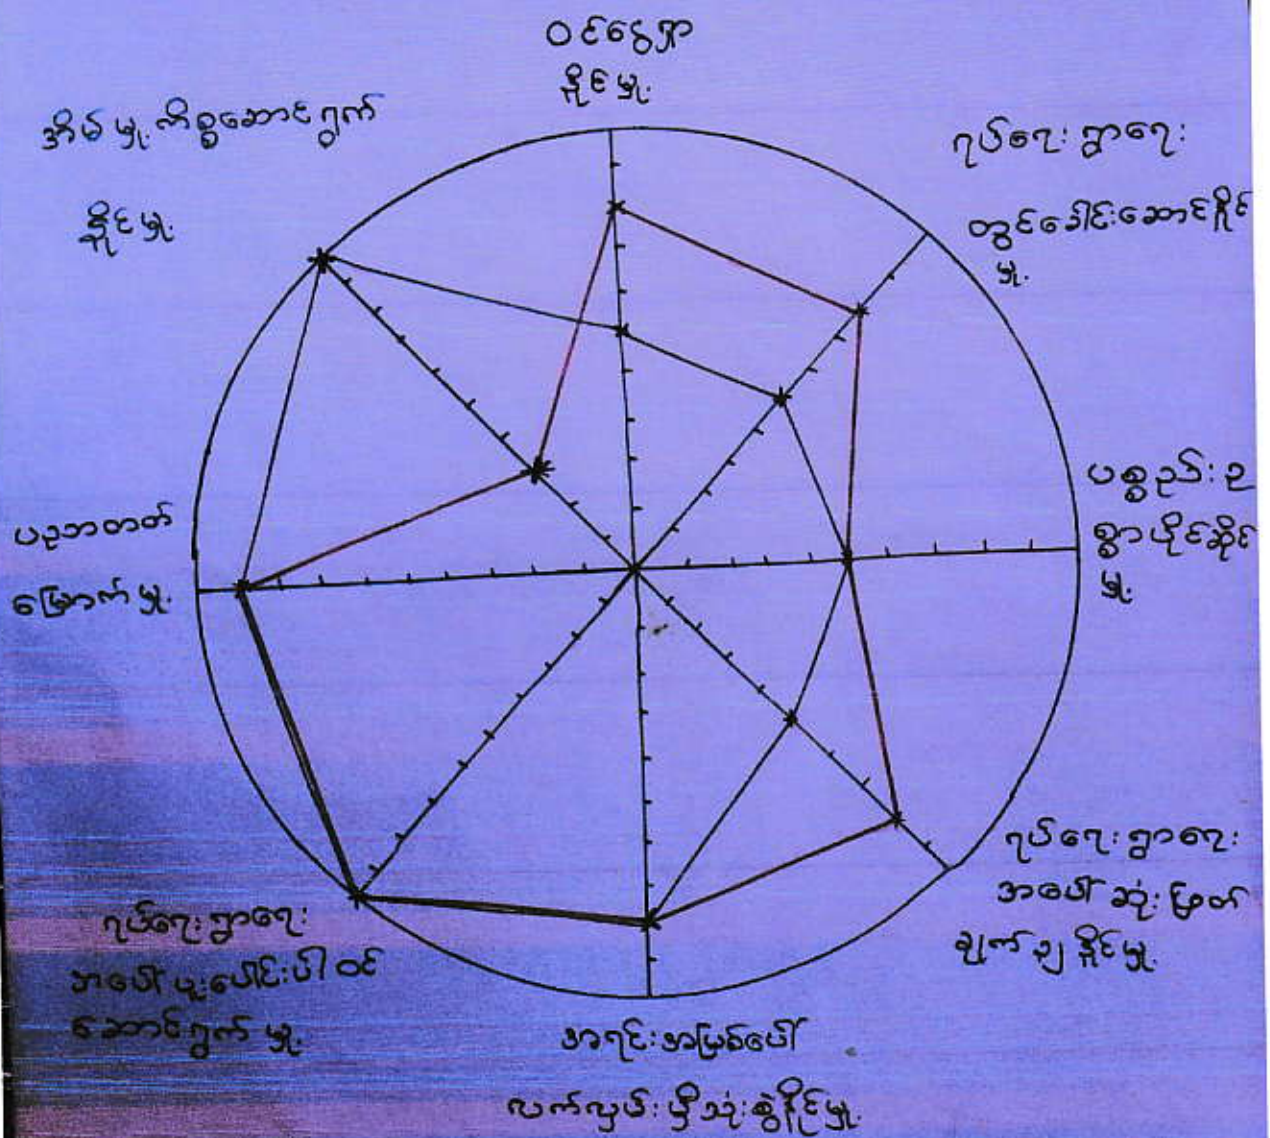 ဝင်ငွေရှာ
နိုင်မှု.
ရပ်ရေး ရွာရေး
တွင်ခေါင်းဆောင်နိုင်
မှု.
ပစ္စည်း ဥ
စ္စာပိုင်ဆိုင်
မှု.
ရပ်ရေး ရွာရေး
အပေါ် ဆုံးဖြတ်
ချက်ချနိုင်မှု.
အရင်းအမြစ်ပေါ်
လက်လှမ်းမှီသုံးစွဲနိုင်မှု.
ရပ်ရေး ရွာရေး
အပေါ် ပူးပေါင်းပါဝင်
ဆောင်ရွက်မှု.
ပညာတတ်
မြောက်မှု.
အိမ်မှု.ကိစ္စဆောင်ရွက်
နိုင်မှု.